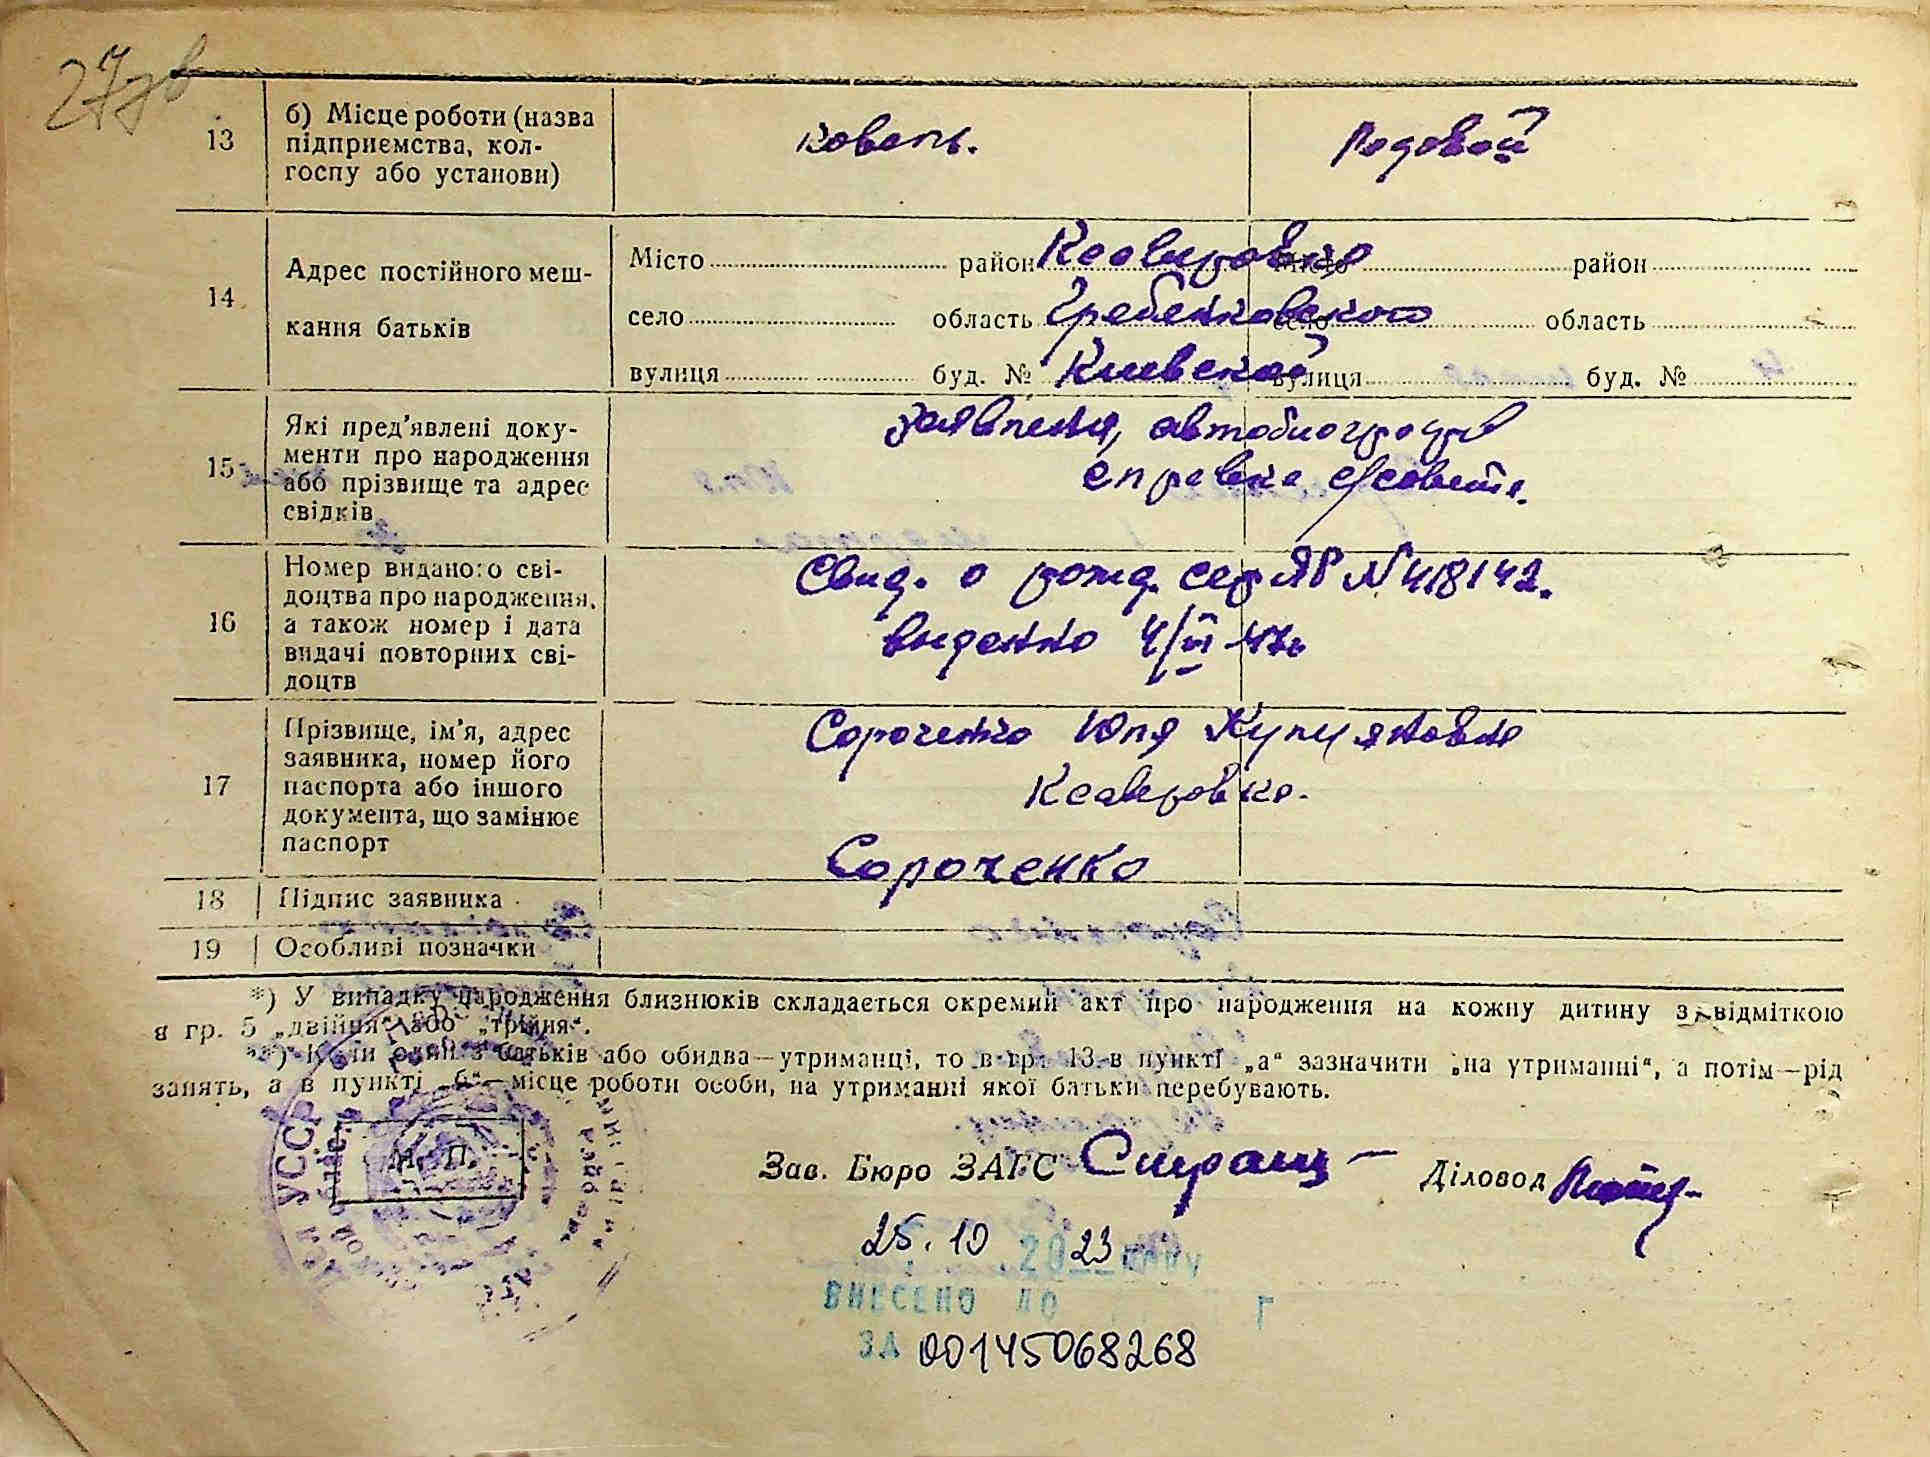 27зв
13
б) Місце роботи (назва підприємства, колгоспу або установи)
коваль.
Рядовой
14
Адрес постійного мешкання батьків
Місто район Ксаверовка Місто район
село область Гребенковского село область
вулиця буд. № Киевской вулиця буд. №
15
Які пред'явлені документи про народження або прізвище та адрес свідків
заявления, автобиограф
справка с/совета.
16
Номер виданого свідоцтва про народження, а також номер і дата видачі повторних свідоцтв
Свид. о рожд. сер ЯР N 418142.
выданно 4/VI 47г
17
Прізвище, ім'я, адрес заявника, номер його паспорта або іншого документа, що замінює паспорт
Сороченко Юля Куприяновна
Ксаверовка.
Сороченко
18 Підпис заявника
19 Особливі позначки
*) У випадку народження близнюків складається окремий акт про народження на кожну дитину з відміткою
в гр. 5 „двійня“ або „трійня“.
**) Коли один з батьків або обидва—утриманці, то в гр. 13 в пункті „а“ зазначити „на утриманні“, а потім—рід
занять, а в пункті „б“—місце роботи особи, на утриманні якої батьки перебувають.
УССР
М. П.
Зав. Бюро ЗАГС Діловод
25.10 2023 року
ВНЕСЕНО ДО Г
ЗА 00145068268